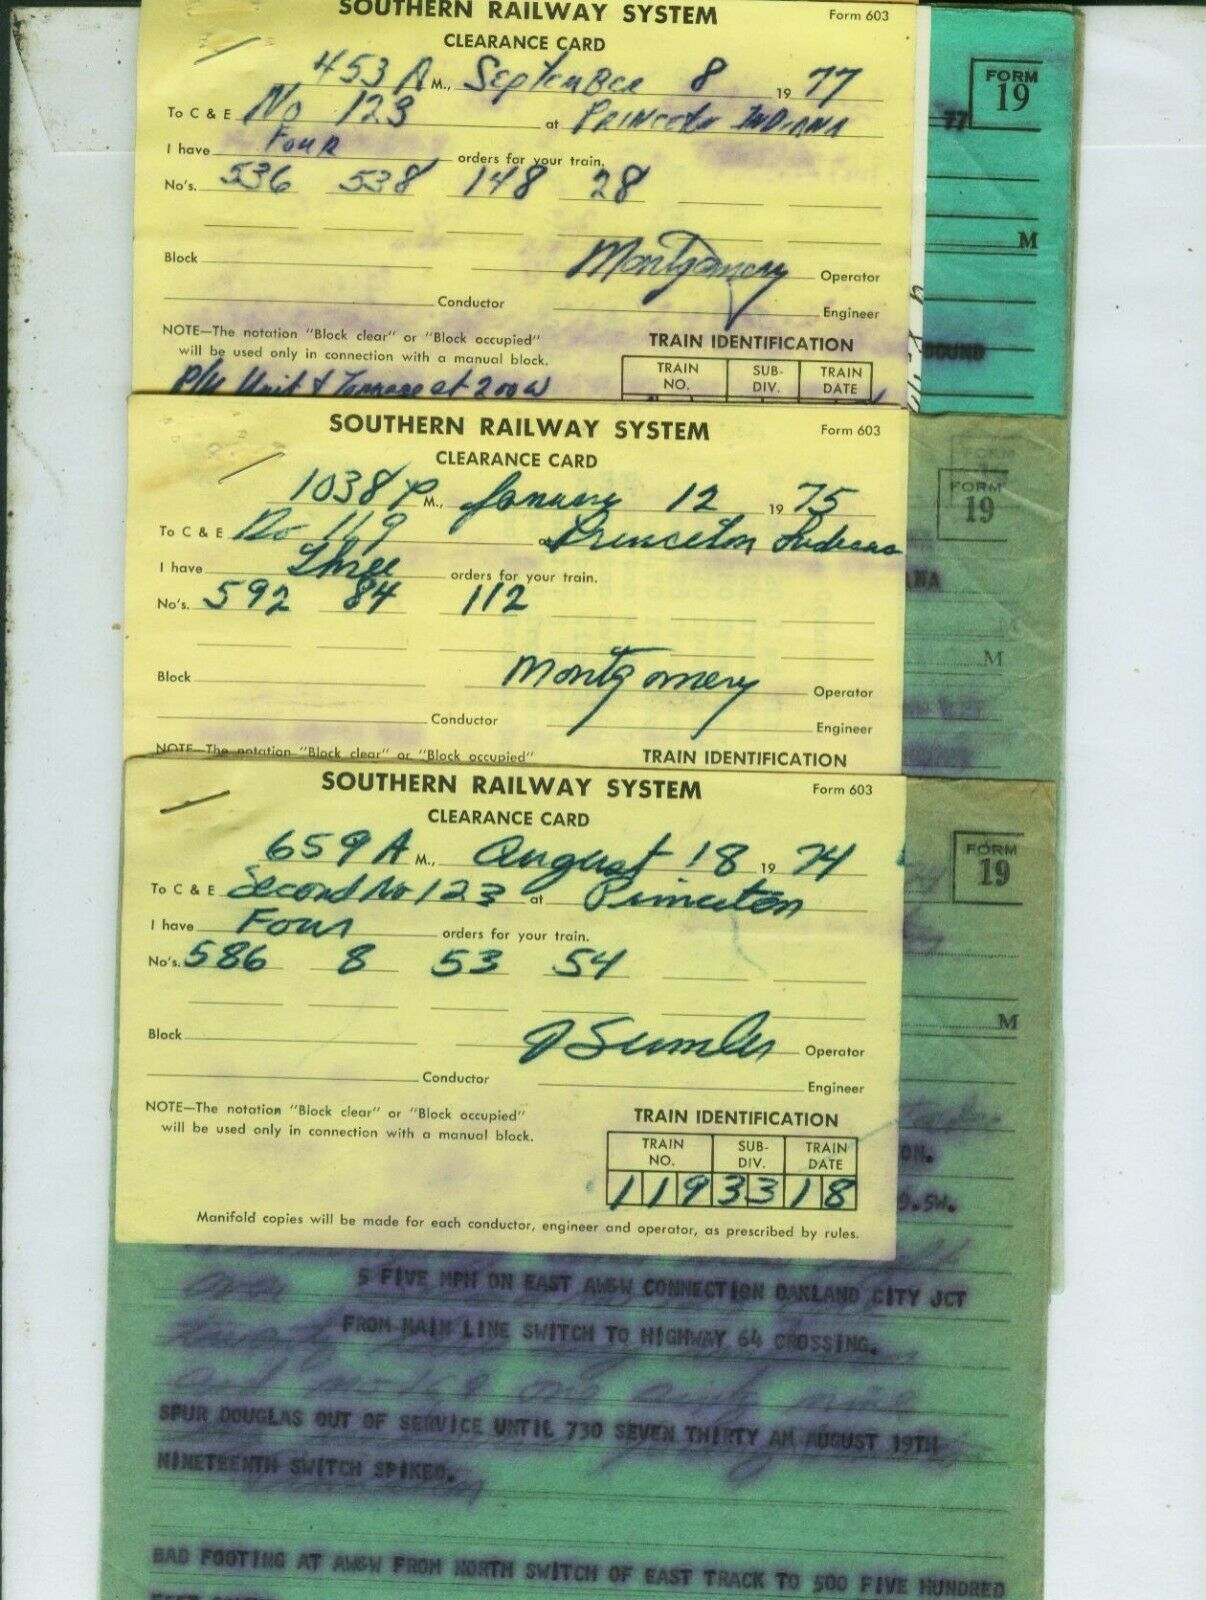 SOUTHERN RAILWAY SYSTEM Form 603
CLEARANCE CARD
453 A M., September 8 1977
To C & E No 123 at Princeton Indiana
I have Four orders for your train.
No's. 536 538 148 28
Montgomery
Block Operator
Conductor Engineer
NOTE—The notation "Block clear" or "Block occupied"
will be used only in connection with a manual block.
TRAIN IDENTIFICATION
TRAIN NO. SUB-DIV. TRAIN DATE
P/U Unit & Tonnage at 200 W
FORM
19
77
M
BOUND
SOUTHERN RAILWAY SYSTEM Form 603
CLEARANCE CARD
1038 P M., January 12 1975
To C & E No 119 Princeton Indiana
I have Three orders for your train.
No's. 592 84 112
Montgomery
Block Operator
Conductor Engineer
NOTE—The notation "Block clear" or "Block occupied"
TRAIN IDENTIFICATION
FORM
19
ANA
M
SOUTHERN RAILWAY SYSTEM Form 603
CLEARANCE CARD
659 A M., August 18 1974
To C & E Second No 123 at Princeton
I have Four orders for your train.
No's. 586 8 53 54
Block Operator
Conductor Engineer
NOTE—The notation "Block clear" or "Block occupied"
will be used only in connection with a manual block.
TRAIN IDENTIFICATION
TRAIN NO. SUB-DIV. TRAIN DATE
119 33 18
Manifold copies will be made for each conductor, engineer and operator, as prescribed by rules.
FORM
19
M
ON.
9.5W.
5 FIVE MPH ON EAST AW&W CONNECTION OAKLAND CITY JCT
FROM MAIN LINE SWITCH TO HIGHWAY 64 CROSSING.
SPUR DOUGLAS OUT OF SERVICE UNTIL 730 SEVEN THIRTY AM AUGUST 19TH
NINETEENTH SWITCH SPIKED.
BAD FOOTING AT AW&W FROM NORTH SWITCH OF EAST TRACK TO 500 FIVE HUNDRED